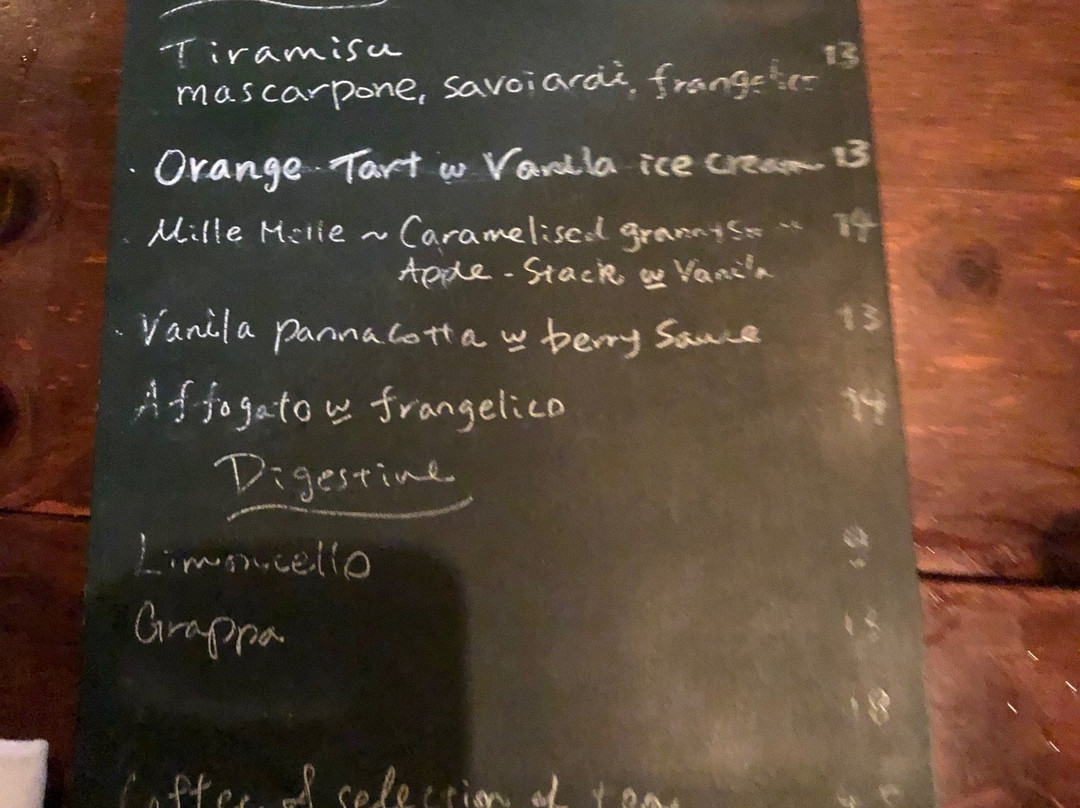 Tiramisu 13
mascarpone, savoiardi, frangelico
· Orange Tart w Vanilla ice cream 13
· Mille Melle ~ Caramelised granny 14
Apple - Stack w Vanila
· Vanila pannacotta w berry Sauce 13
Affogato w frangelico 14
Digestive
Limoncello
Grappa
18
Coffee of selection of tea